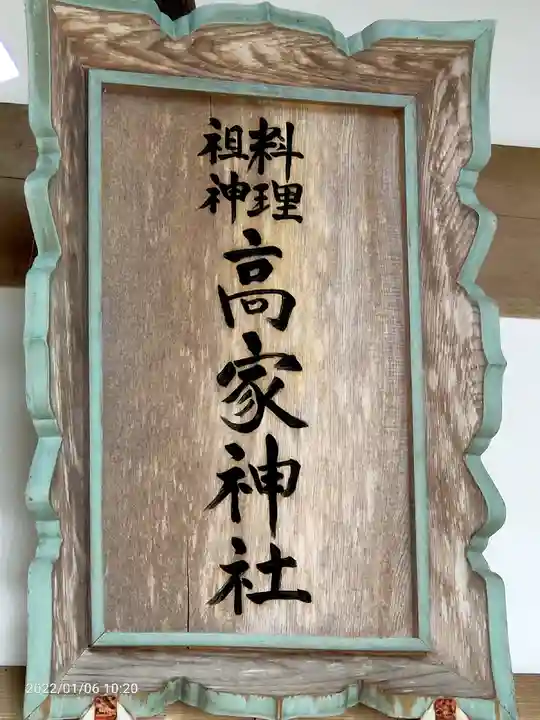 料理
祖神
高家神社
2022/01/06 10:20